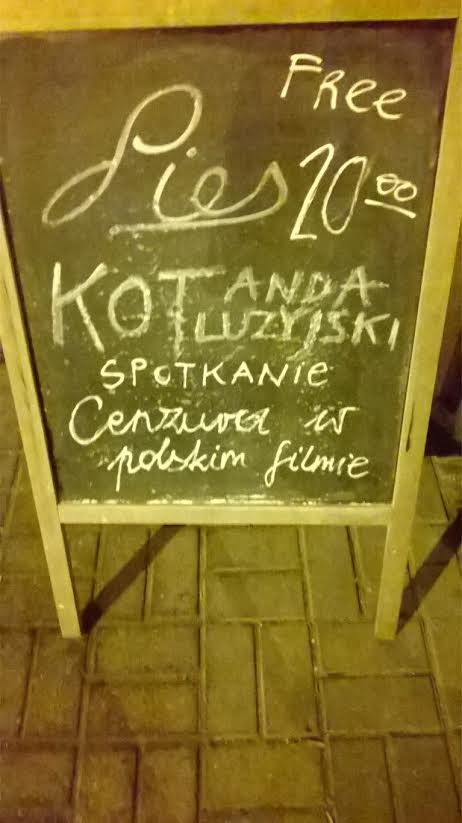 Free
Pies 20 00
KOT ANDA
LUZYJSKI
SPOTKANIE
Cenzura w
polskim filmie